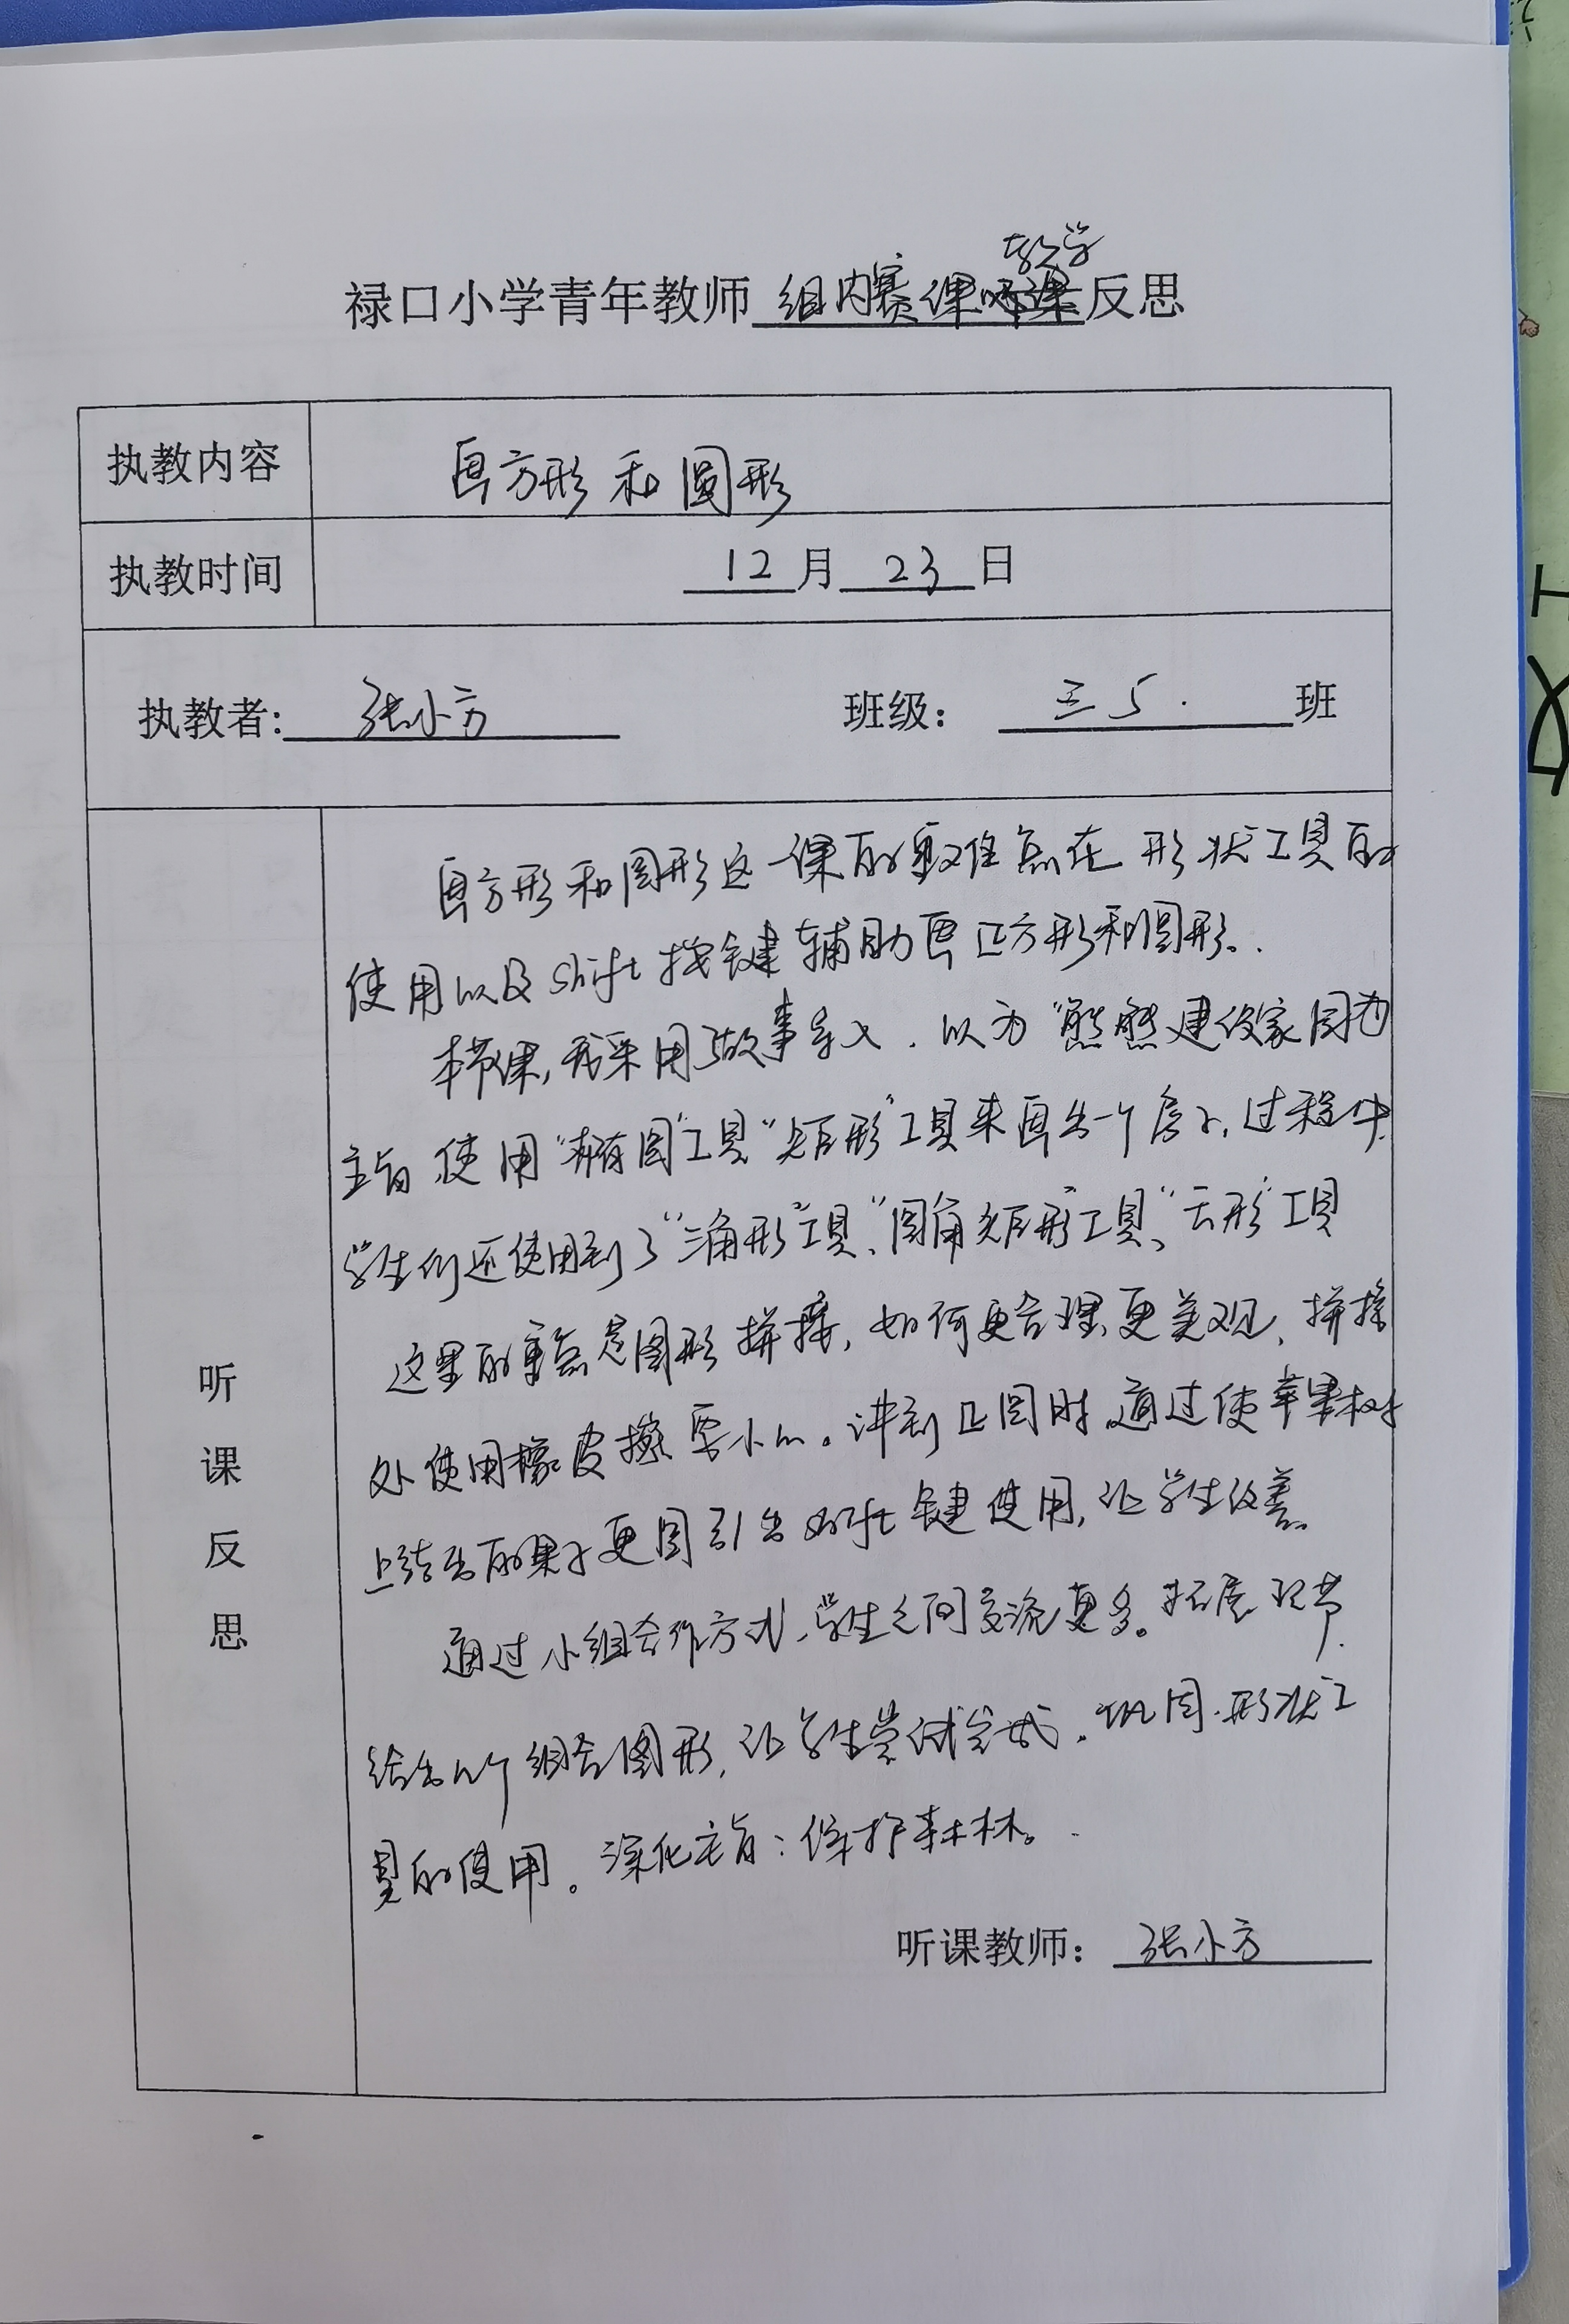 教学
禄口小学青年教师 组内赛课听课反思
执教内容 画方形和圆形
执教时间 12月23日
执教者: 张小方 班级: 三5. 班
画方形和圆形这一课的重难点在形状工具的
使用以及shift按键辅助画正方形和圆形。
本节课,我采用了故事导入,以为“熊熊建设家园为
主旨,使用“椭圆”工具“矩形”工具来画出一个房子,过程中
学生们还使用到了“三角形”工具、“圆角矩形”工具、“云形”工具
这里的重点是图形拼接,如何更合理、更美观,拼接
处使用橡皮擦要小心。讲到正圆时,通过使苹果树
上结出的果子更圆引出shift键使用,让学生改善
通过小组合作方式,学生之间交流更多。拓展环节
给出几个组合图形,让学生尝试完成,巩固形状工
具的使用。深化主旨:保护森林。
听课反思
听课教师: 张小方